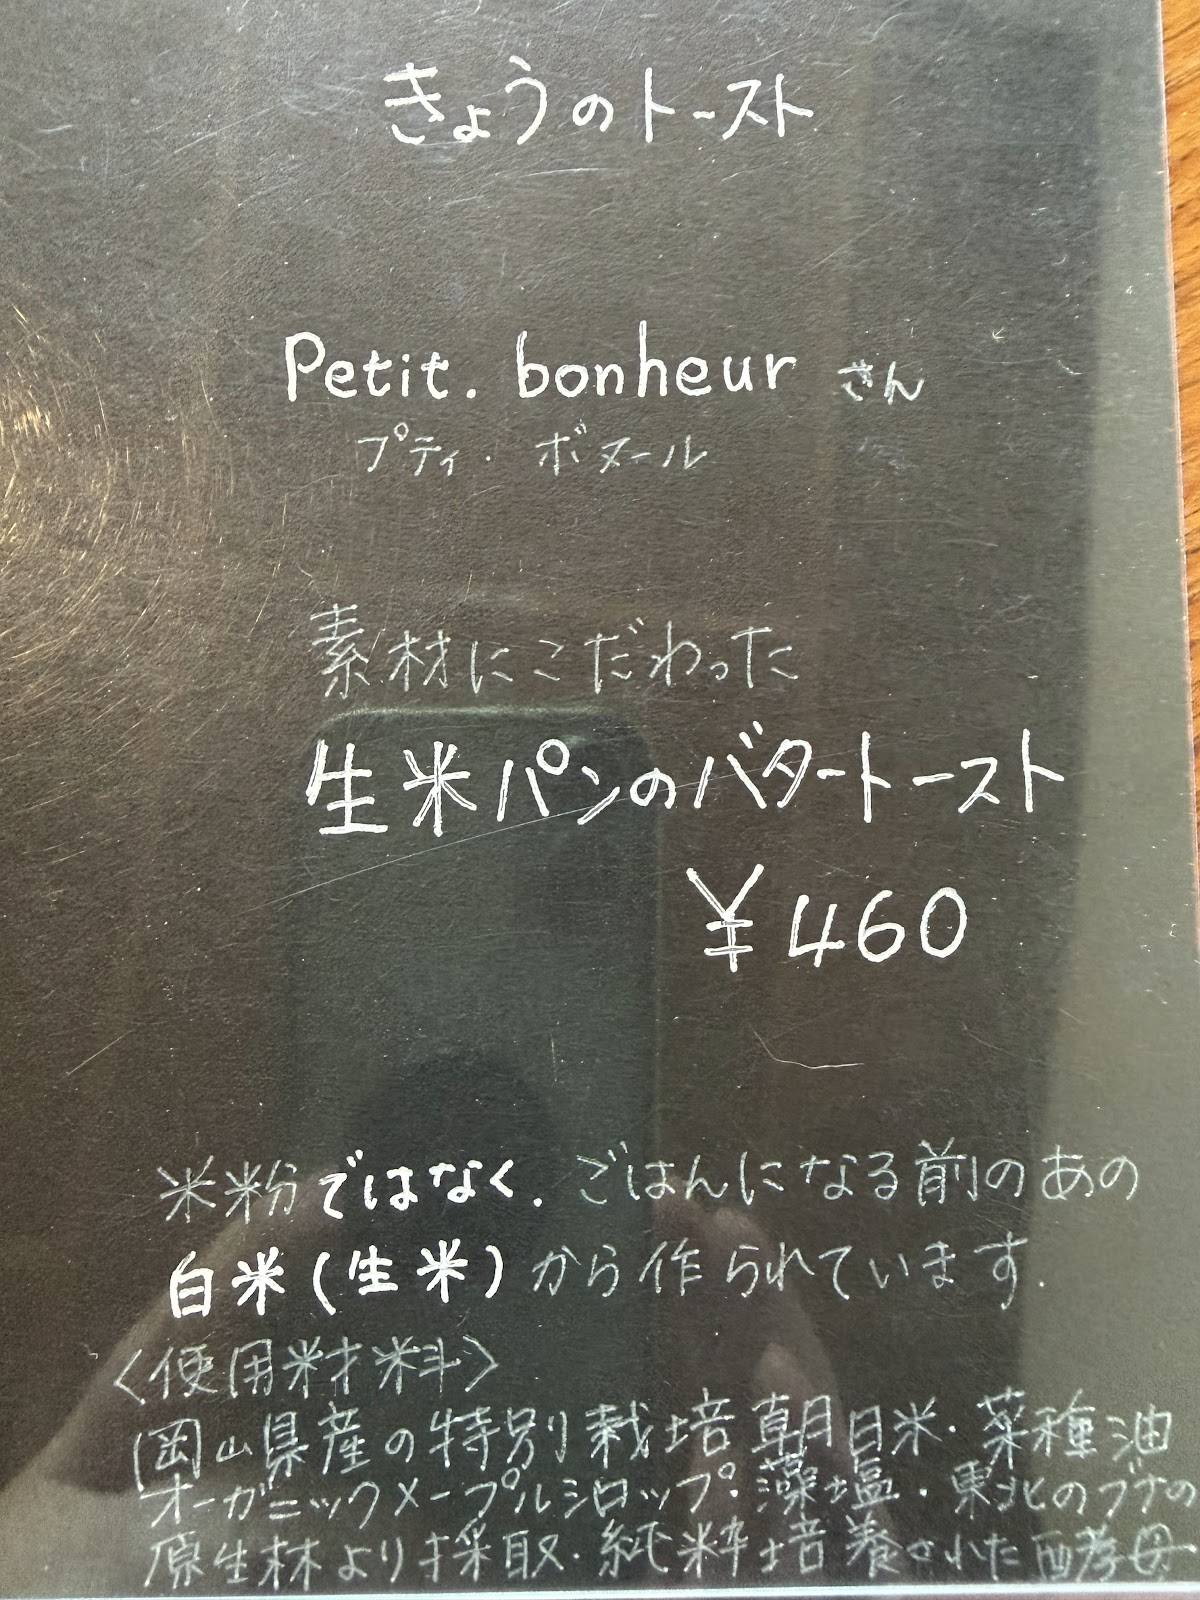 きょうのトースト
Petit. bonheur さん
プティ・ボヌール
素材にこだわった
生米パンのバタートースト
¥460
米粉ではなく、ごはんになる前のあの
白米(生米)から作られています。
〈使用材料〉
岡山県産の特別栽培朝日米・菜種油
オーガニックメープルシロップ・藻塩・東北のブナの
原生林より採取・純粋培養された酵母